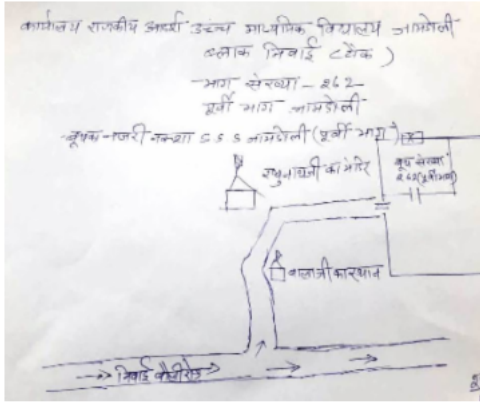 कार्यालय राजकीय आदर्श उच्च माध्यमिक विद्यालय जामडोली
ब्लाक निवाई (टोंक)
भाग संख्या - 262
पूर्वी भाग जामडोली
नजरी नक्शा S S S जामडोली (पूर्वी भाग)
रघुनाथजी का मंदिर
बूथ संख्या
262 (पूर्वी भाग)
बालाजी का स्थान
निवाई रोड